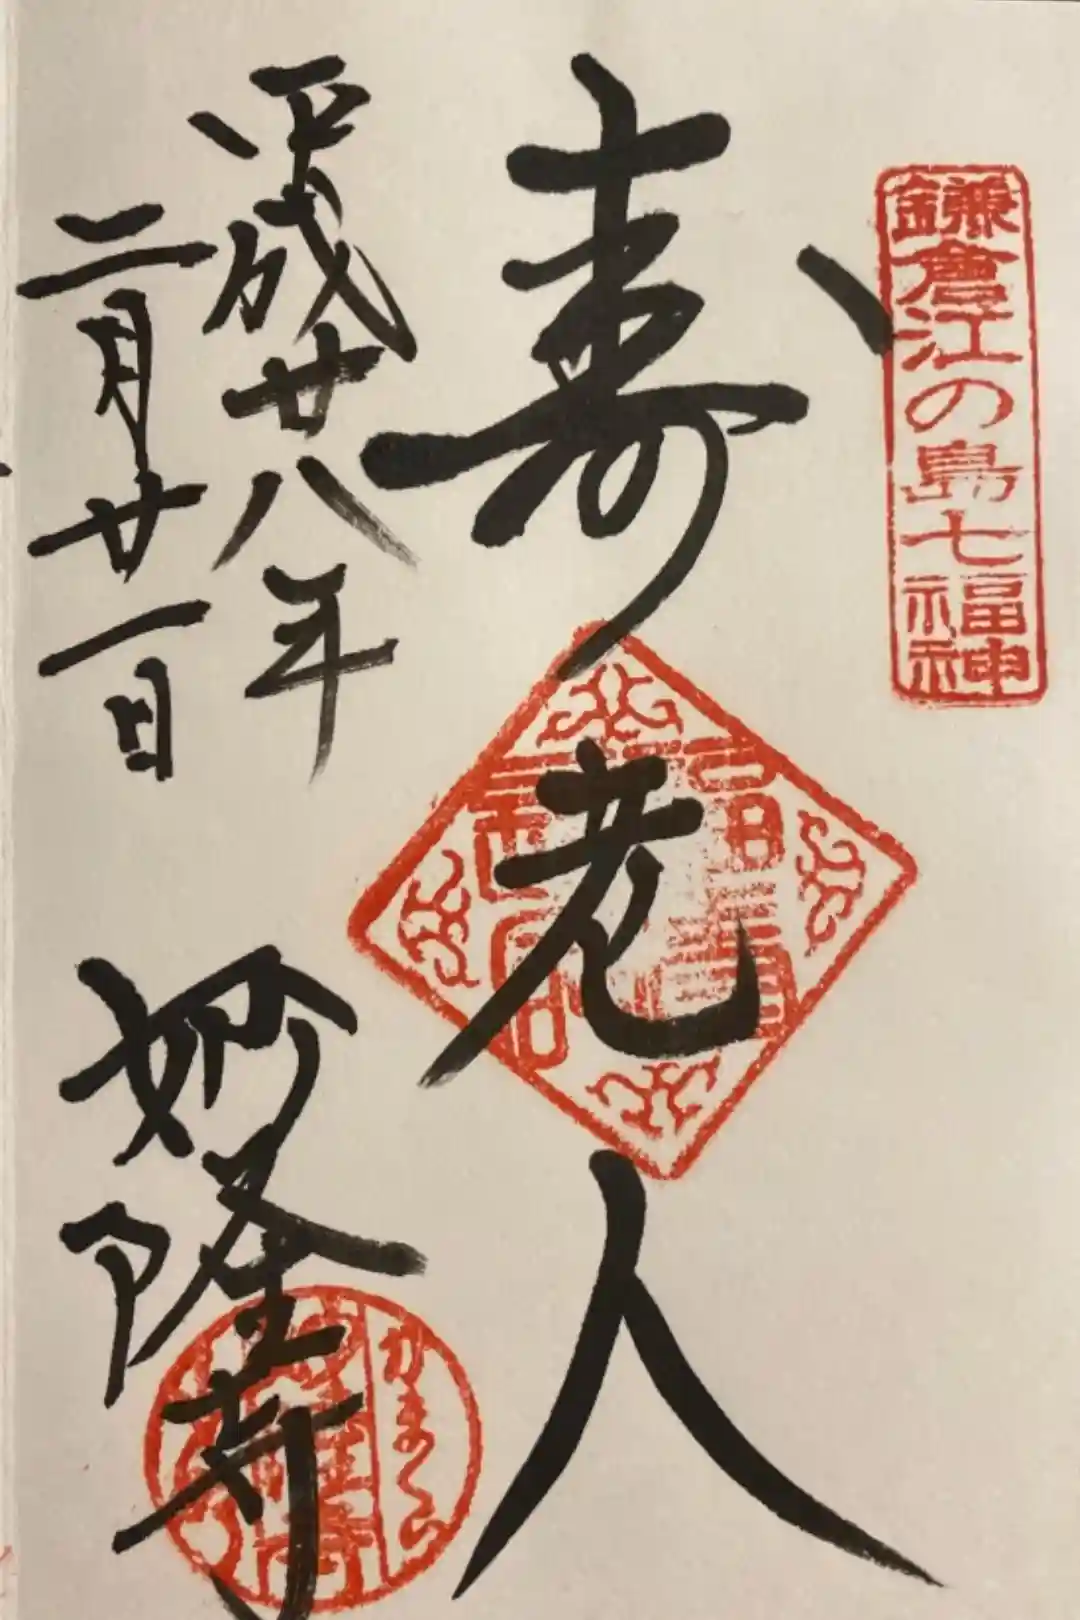 鎌倉江の島七福神
寿老人
平成廿八年
二月廿一日
妙隆寺
かまくら